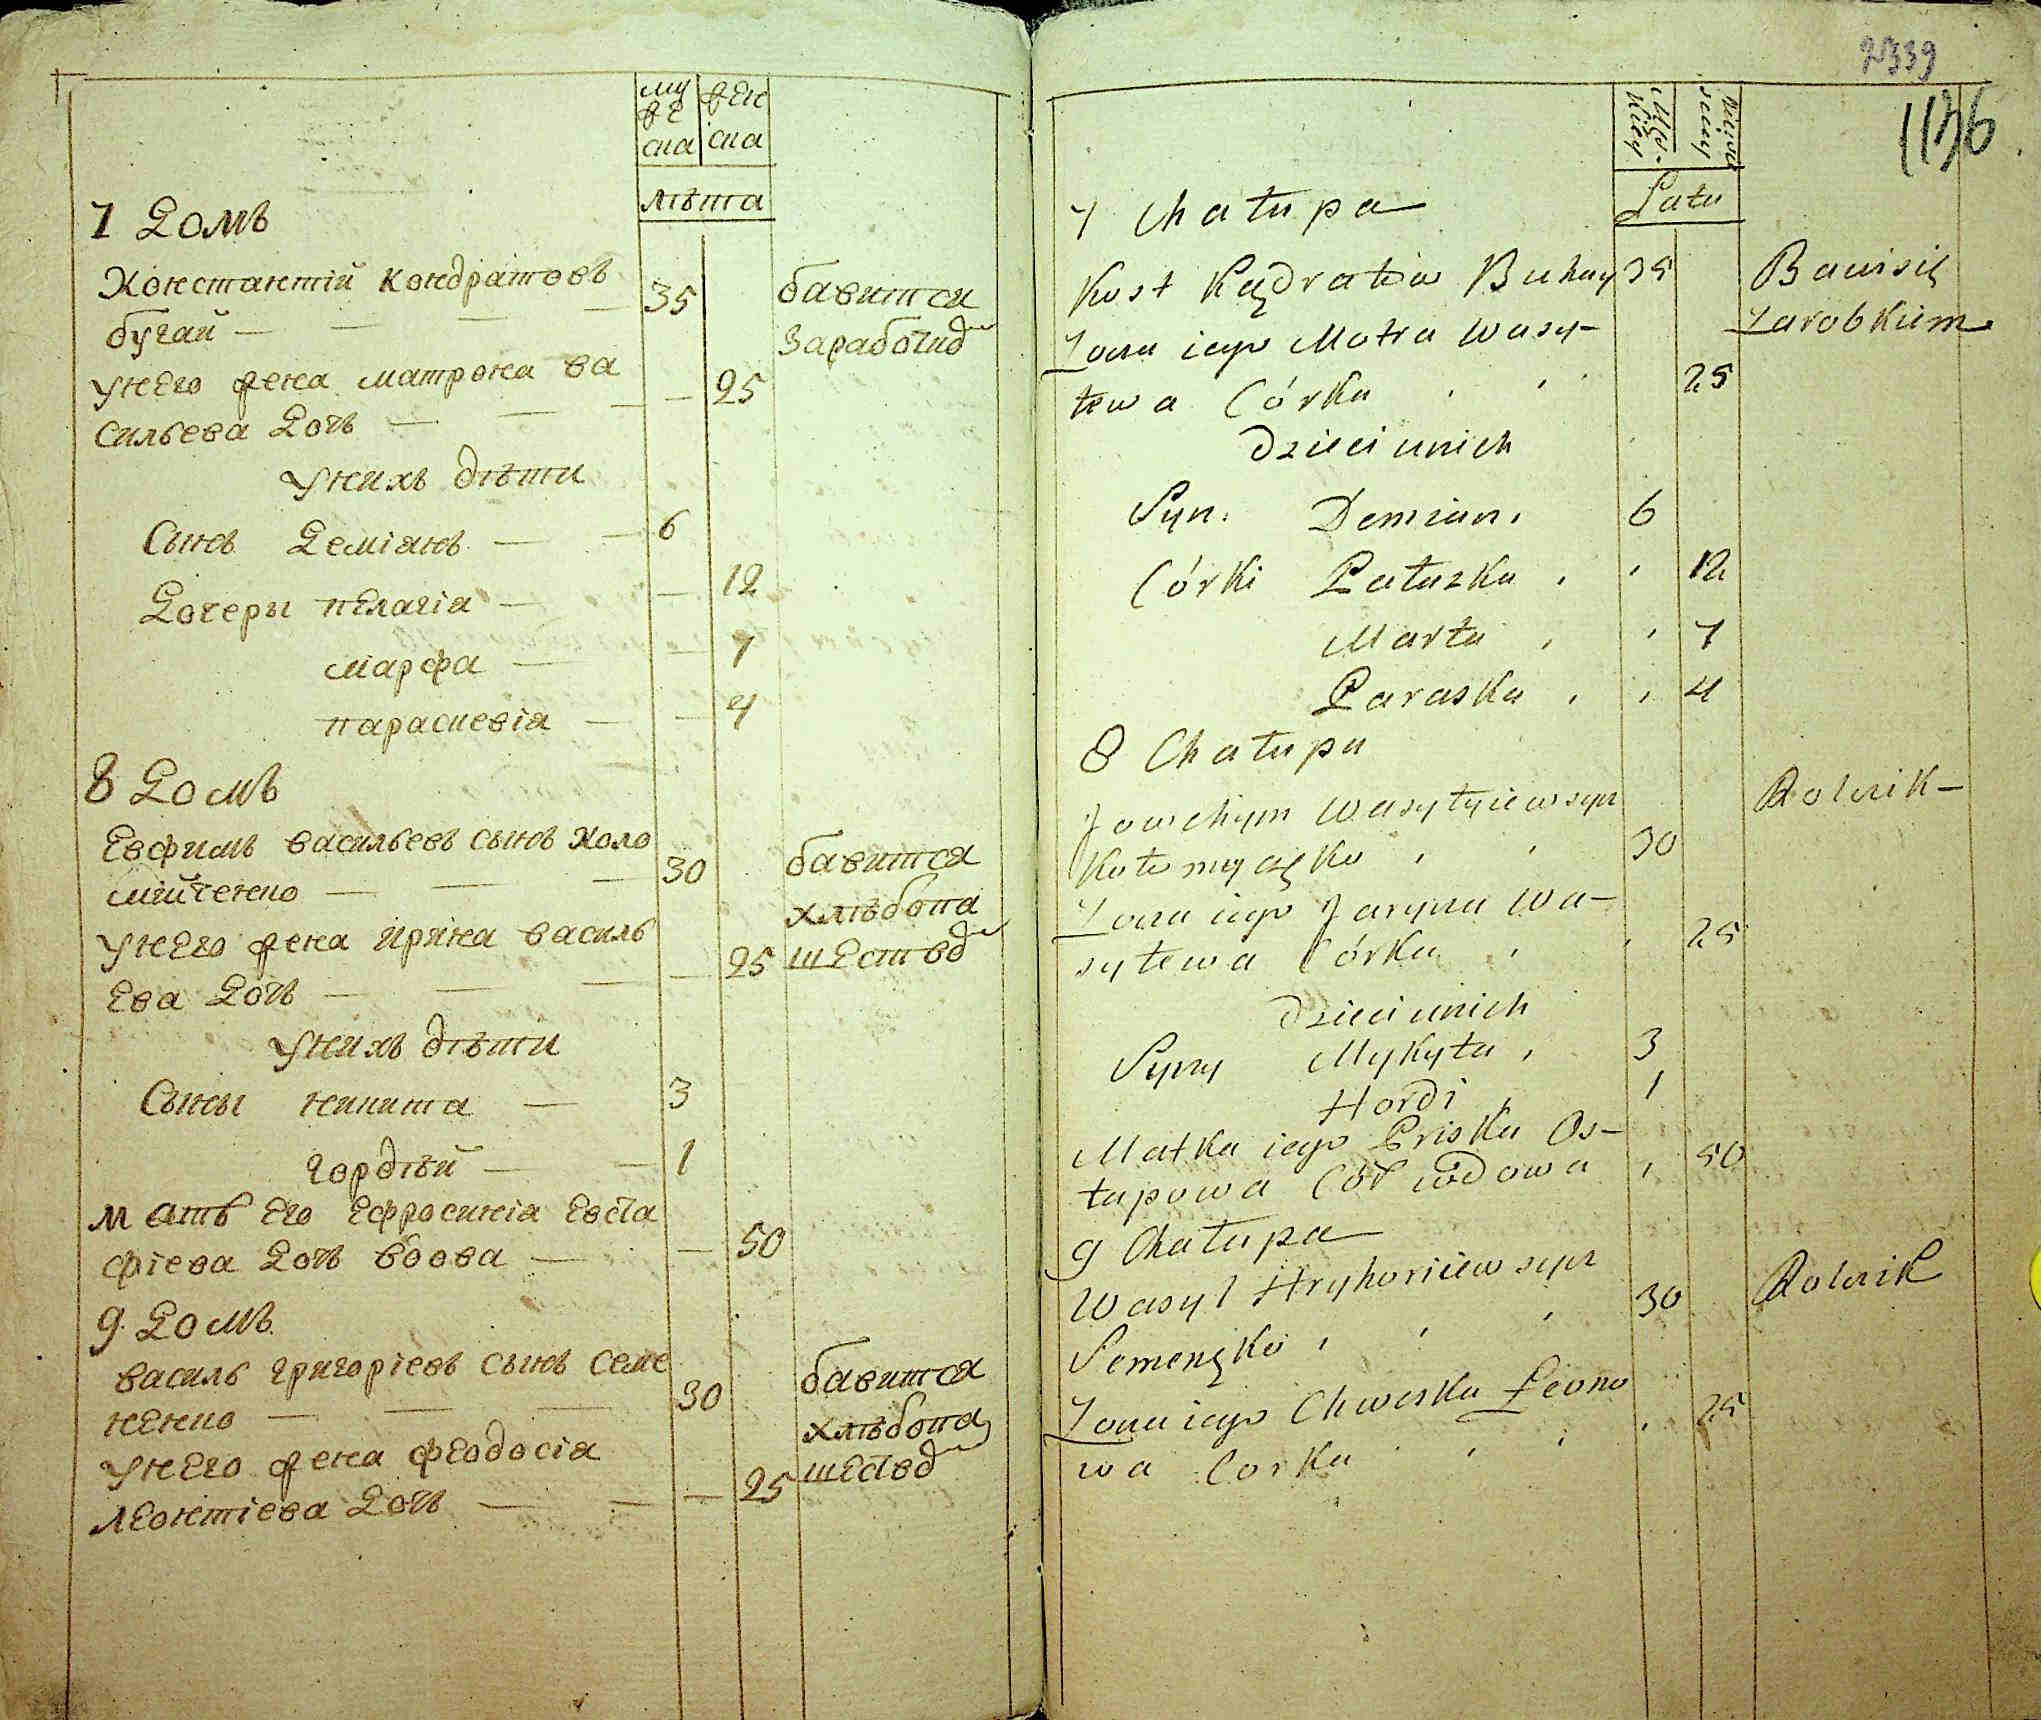 муже ска
жен ска
лѣта
7 Домъ
Константій Кондратовъ
бугай — 35 бавится
заработкд
у него жена матрона ва
сильева Дочь — 25
у нихъ дѣти
Сынъ Деміянъ — 6
Дочеры пелагія — 12
марфа — 7
параскевія — 4
8 Домъ
Евфимъ васильевъ сынъ Коло
мійченко — 30 бавится
хлѣбопа
у него жена ирина василь
ева Дочь — 25 шествд
у нихъ дѣти
Сыны никита — 3
гордѣй — 1
мать его Ефросинія Евста
фіева Дочь вдова — 50
9 Домъ
василь григоріевъ сынъ семе
ненко — 30 бавится
хлѣбопа
у него жена феодосія шествд
леонтіева Дочь — 25
2339
1136
Męz-
kiey
Latu
7 Chałupa
Kost Kądratiw Buhay 35 Bawi się
Zarobkiem
Zona iego Motra Wasy-
lewa Córka 25
Dzieci u nich
Syn. Demian 6
Córki Pałaszka 12
Marta 7
Paraska 4
8 Chałupa
Jowchym Wasylyiew syn Rolnik
Kołomyczęko 30
Zona iego Jaryna Wa-
sylewa Córka 25
Dzieci u nich
Syny Mykyta 3
Hordi 1
Matka iego Priska Os-
tapowa Cór wdowa 50
9 Chałupa
Wasyl Hryhoriiew syn
Semenęko 30 Rolnik
Zona iego Chweska Leono
wa Corka 25